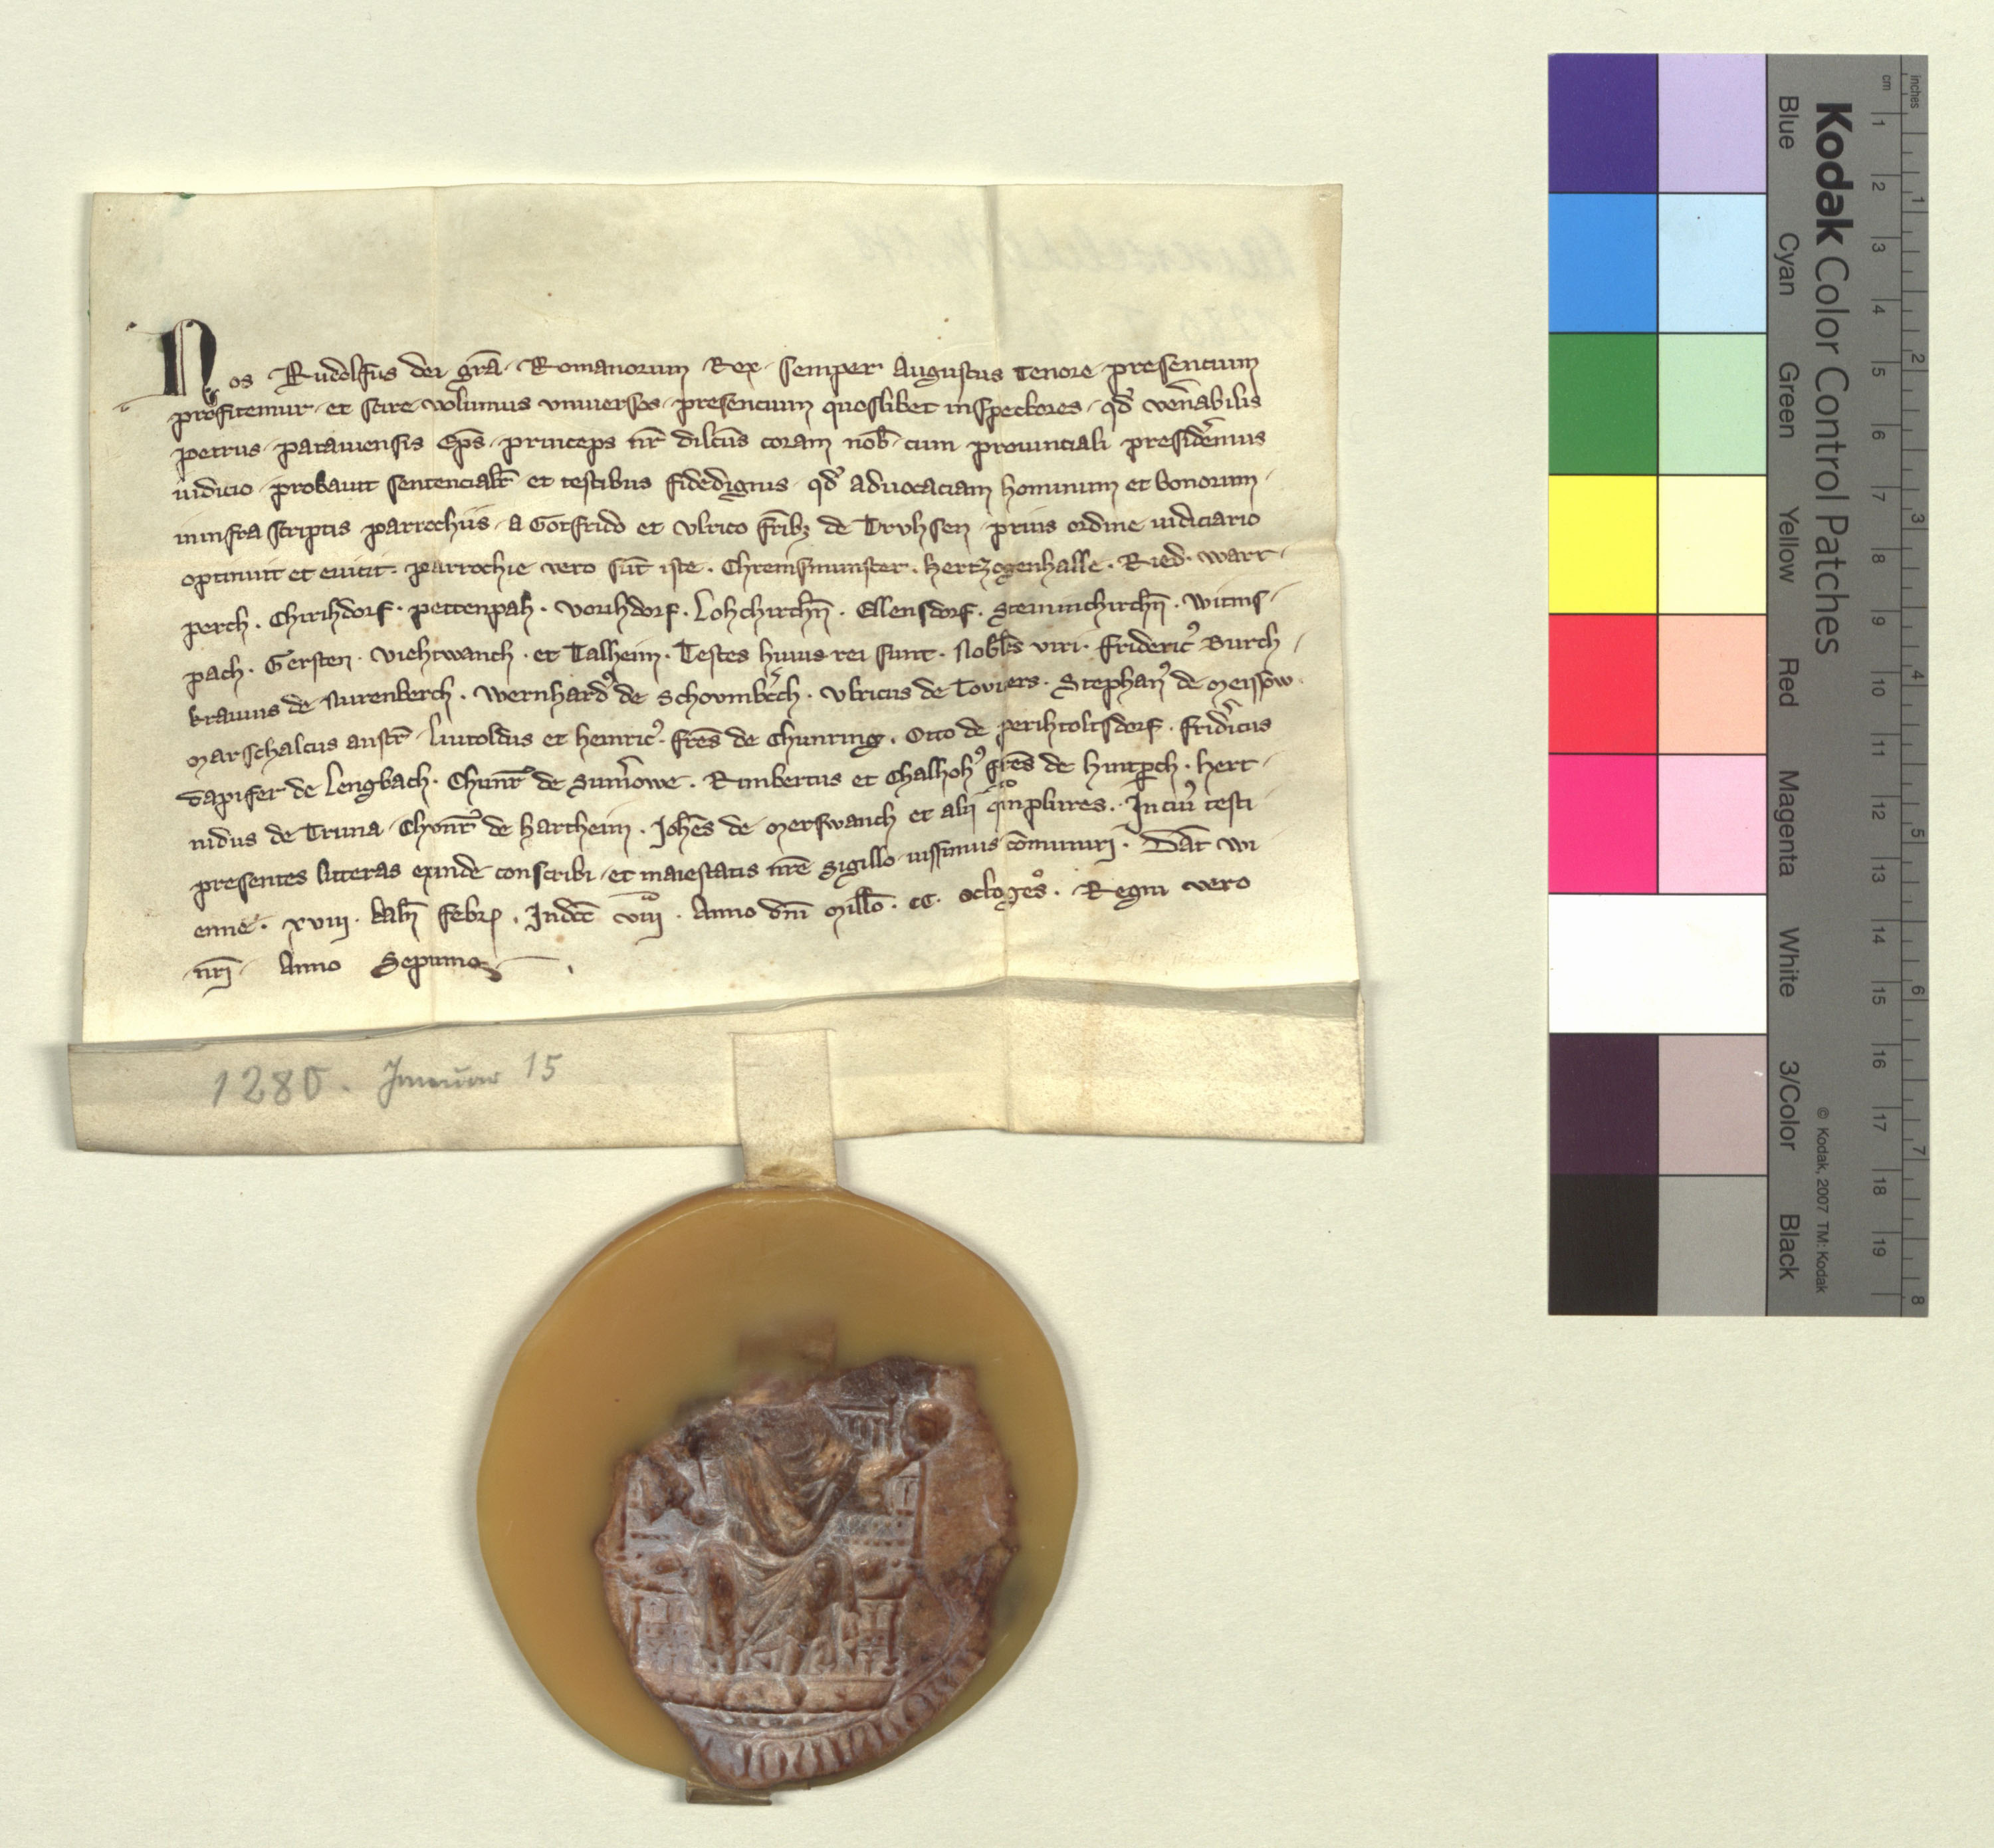 Nos Rudolfus dei gr̄a Romanorum Rex semper Augustus Tenore presencium
profitemur et scire volumus vniuersos presencium quoslibet inspectores qd̄ ven̄abilis
petrus patauiensis Ep̄s princeps nr̄ dilc̄us coram nob̄ cum prouinciali presidēmus
iudicio probauit sentencialr̄ et testibus fidedignis qd̄ aduocaciam hominum et bonorum
in infra scriptis parrochiis a Gotfrido et vlrico fr̄ib; de Truhsen prius ordine iudiciario
optinuit et euicit. parrochie vero sūt iste. Chremsmunster. hertzogenhalle. Ried. wart
perch. Chirihdorf. pettenpah. vorihdorf. Lohchirchn̄. Ellensdorf. Steininchirchn̄. witins
pach. Gersten. viehtwanch. et Talheim. Testes huius rei sunt. Nobl̄es viri. Frideric⁹ Burch
krauius de Nurenberch. wernhard⁹ de Schovmb̄ch. vlricus de Toviers. Stephan⁹ de Meissow.
Marschalcus austr̄. Liutoldus et heinric⁹. fr̄es de Chunring. Otto de perihtoltsdorf. Frid̄icus
Dapifer de Lengbach. Chunr̄ de Sum̄owe. Rimbertus et Chalhoh⁹ fr̄es de hintp̄ch. hert
nidus de Truna Chvnr̄ de hartheim. Joh̄es de Merswanch et alii q̄mplures. In cui⁹ testi
presentes litteras exinde conscribi et maiestatis nr̄e Sigillo iussimus cōmuniri. Dat̄ wi
enne. xviii. kaln̄ Febr̄. Indc̄t viii. Anno dn̄i Mill̄o. CC. octoges̊. Regni vero
nr̄i Anno Septimo.
1280. Januar 15
Kodak Color Control Patches
Blue Cyan Green Yellow Red Magenta White 3/Color Black
© Kodak, 2007 TM: Kodak
cm 1 2 3 4 5 6 7 8 9 10 11 12 13 14 15 16 17 18 19
inches 1 2 3 4 5 6 7 8